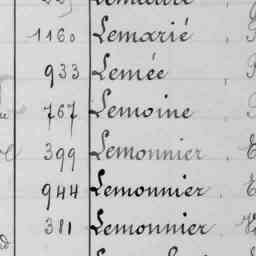 1160 Lemarié
933 Lemée
767 Lemoine
399 Lemonnier
944 Lemonnier
381 Lemonnier